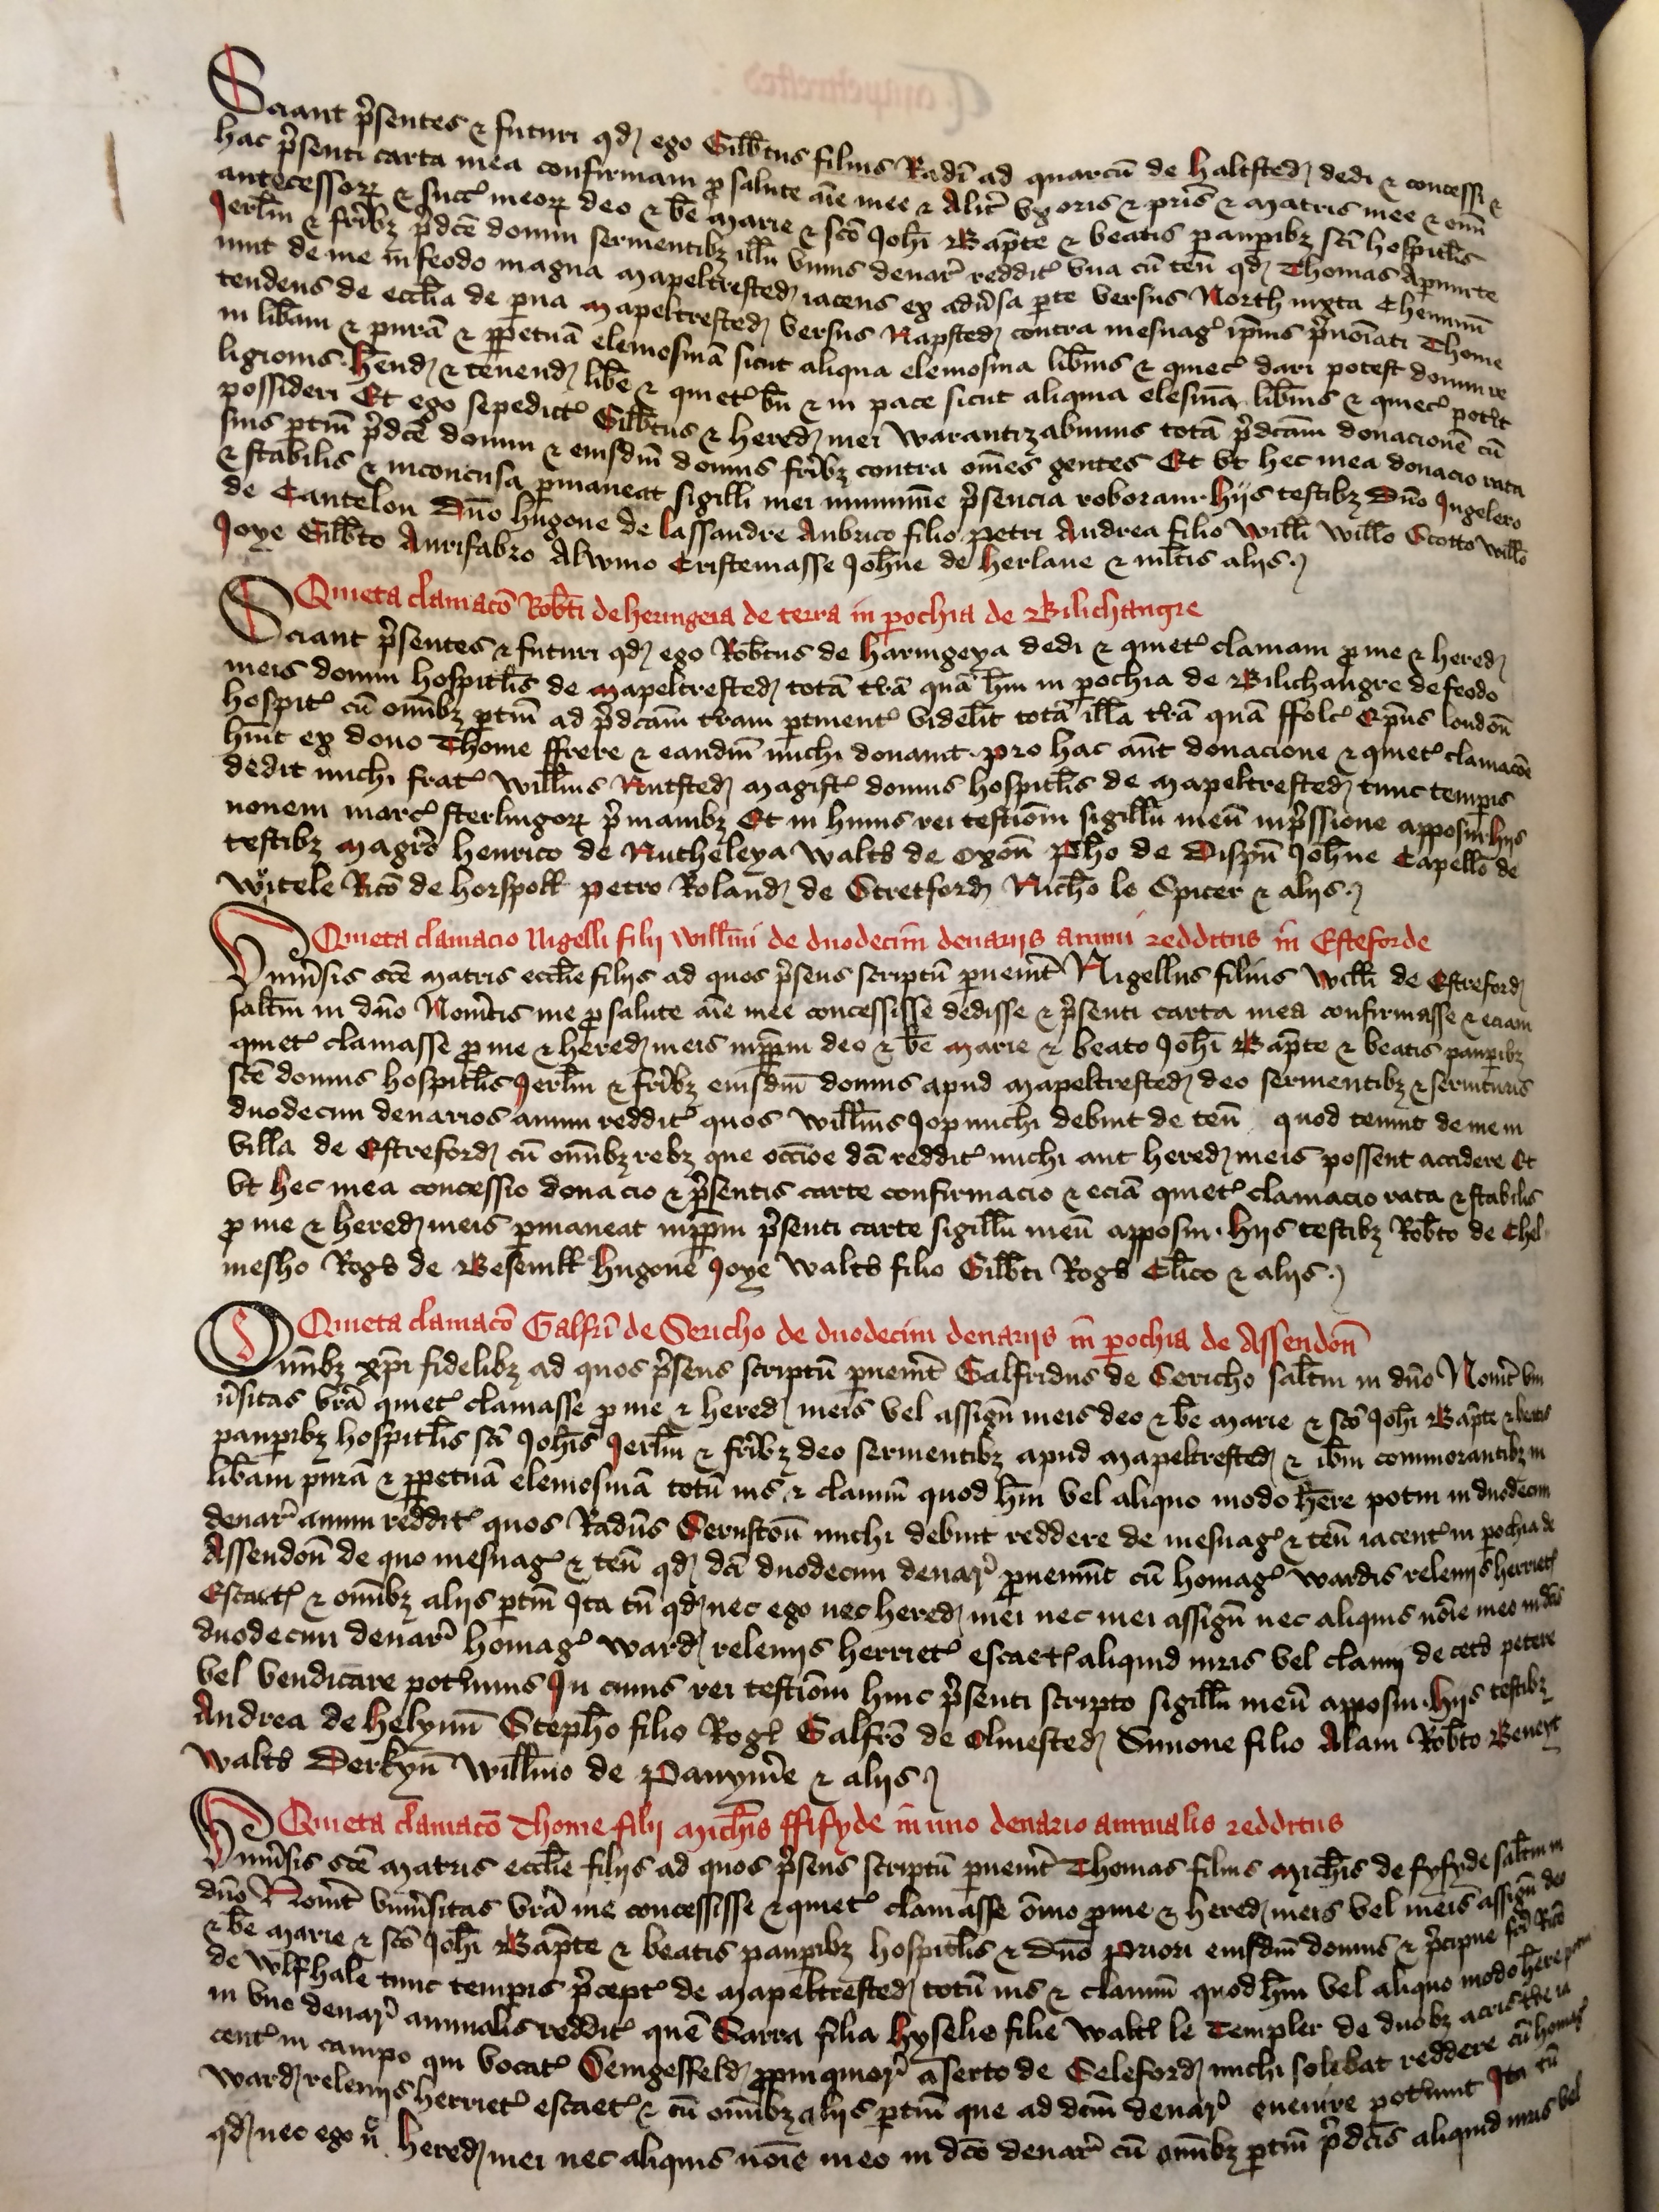 Sciant p̃sentes ⁊ futuri qd̛ ego Gilb̃tus filius Radi ad quarcū de halsted̛ dedi ⁊ concessi ⁊
hac p̃senti carta mea confirmam p salute aīe mee ⁊ Alic̃ vxoris ⁊ pr̃is ⁊ matris mee ⁊ om̄
antecessoꝝ ⁊ succ̃ meoꝝ deo ⁊ b̃e marie ⁊ sc̃o Joh̃i Bap̃te ⁊ beatis paupibꝫ sc̃i hospitl̃is
Jerl̃m ⁊ fr̃ibꝫ p̃dc̃e domui seruientibꝫ illū unius denar̃ reddit̃ vna cū ten̄ qd̛ Thomas
nuit de me in feodo magna mapeltrested̛ iacens ex adũsa pte versus North iuxta Cheminū
tendens de eccl̃ia de pua mapeltrested̛ versus Rapsted̛ contra mesuag̃ ip̃ius p̃noīati Thome
in lib̃am ⁊ purā ⁊ ppetuā elemosinā sicut aliqua elemosina lib̃ius ⁊ quiec̃ dari potest domui re
ligionis. hend̛ ⁊ tenend̛ lib̃e ⁊ quiet̃ bn̄ ⁊ in pace sicut aliqua elesinā lib̃ius ⁊ quiec̃ pot̃it
possideri Et ego sepedict̃ Gilb̃tus ⁊ hered̛ mei warantizabimus totā p̃dcām donacionē cū
suis ptin̄ p̃dc̃e domui ⁊ eiusdm̄ domus fr̃ibꝫ contra om̄es gentes Et vt hec mea donacio rata
⁊ stabilis ⁊ inconcusa pmaneat sigilli mei munimīe p̃sencia roboraui. hijs testibꝫ Dño Ingelero
de Cantelou Dño hugone de lassandre Aubrico filio petri Andrea filio Willi̅ Willo̅ Scotto Willo̅
Joye Gilb̃to Aurifabro Alwino Cristemasse Joh̃ne de herlaue ⁊ ml̃tis alijs.
Quieta clamacō Rob̃ti de heringeia de terra in pochia de Bilichangre
Sciant p̃sentes ⁊ futuri qd̛ ego Rob̃tus de haringeya dedi ⁊ quiet̃ clamam p me ⁊ hered̛
meis domui hospitl̃is de mapeltrested̛ totā t̃rā quā h̃m in pochia de Bilichangre de feodo
hospit̃ cū om̄ibꝫ ptin̄ ad p̃dcām t̃ram ptinent̃ videl̃it totā illā t̃rā quā ffolc̃ Ep̃us londoñ
h̃uit ex dono Thome ffrere ⁊ eandm̄ michi donauit. pro hac aūt donacione ⁊ quiet̃ clamacōe
dedit michi frat̃ Willm̃us Rutsted̛ magist̃ domus hospitl̃is de mapeltrested̛ tunc tempis
nouem marc̃ sterlingoꝝ p̃ manibꝫ Et in huius rei testiōm sigillū meū inp̃ssione apposui. hijs
testibꝫ magr̃o henrico de Rutheleya Walt̃o de Oxoñ ph̃o de Dispñ Joh̃ne Capello̅ de
Witele Ric̃o de horspoll petro Roland̛ de Stretford̛ Nich̃o le Spicer ⁊ alijs.
Quieta clamacio Nigelli filij Willm̃i de duodecim denarijs annui redditus in Esteforde
Vniũsis sc̃e matris eccl̃ie filijs ad quos p̃sens scriptū puen̄it Nigellus filius Willi̅ de Estreford̛
salt̃m in dño Nou̅tis me p salute aīe mee concessisse dedisse ⁊ p̃senti carta mea confirmasse ⁊ eciam
quiet̃ clamasse p me ⁊ hered̛ meis inppm̄ deo ⁊ b̃e marie ⁊ beato Joh̃i Bap̃te ⁊ beatis paupibꝫ
sc̃e domus hospitl̃is Jerl̃m ⁊ fr̃ibꝫ eiusdm̄ domus apud mapeltrested̛ deo seruientibꝫ ⁊ seruituris
duodecim denarios annui reddit̃ quos Willm̃us Jop michi debuit de ten̄ quod tenuit de me in
villa de Estreford̛ cū om̄ibꝫ rebꝫ que occīoe dc̃i reddit̃ michi aut hered̛ meis possent accidere Et
vt hec mea concessio donacio ⁊ p̃sentis carte confirmacio ⁊ eciā quiet̃ clamacio rata ⁊ stabilis
p me ⁊ hered̛ meis pmaneat inppm̄ p̃senti carte sigillū meū apposui. hijs testibꝫ Rob̃to de Chel
mesho Rog̃o de Besemll hugone Joye Walt̃o filio Gilb̃ti Rog̃o Cl̃ico ⁊ alijs.
Quieta clamacō Galfr̃i de Sericho de duodecim denarijs in pochia de Assendoñ
Om̄ibꝫ xp̃i fidelibꝫ ad quos p̃sens scriptū puen̄it Galfridus de Sericho salt̃m in dño Nou̅it vni
ũsitas vr̃a quiet̃ clamasse p me ⁊ hered̛ meis vel assign̄ meis deo ⁊ b̃e marie ⁊ sc̃o Joh̃i Bap̃te ⁊ beatis
paupibꝫ hospitl̃is sc̃i Joh̃is Jerl̃m ⁊ fr̃ibꝫ deo seruientibꝫ apud mapeltrested̛ ⁊ ib̃m commorantibꝫ in
lib̃am purā ⁊ ppetuā elemosinā totū ius ⁊ clamiū quod h̃m vel aliquo modo h̃ere potui in duodecim
denar̃ annui reddit̃ quos Radũs Sernstoū michi debuit reddere de mesuag̃ ⁊ ten̄ iacent̃ in pochia de
Assendoñ de quo mesuag̃ ⁊ ten̄ qd̛ dc̃i duodecim denar̃ pueniūt cū homag̃ wardis releuijs herriet̃
Escaet̃ ⁊ om̄ibꝫ alijs ptin̄ Ita tn̄ qd̛ nec ego nec hered̛ mei nec mei assign̄ nec aliquis nōie meo in dc̃is
duodecim denar̃ homag̃ ward̛ releuijs herriet̃ escaet̃ aliquid iuris vel clamij de cet̃o petere
vel vendicare pot̃imus In cuius rei testiōm huic p̃senti scripto sigillū meū apposui. hijs testibꝫ
Andrea de helyum̄ Steph̃o filio Rog̃i Galfr̃o de Olmested̛ Simone filio Alani Rob̃to Beneyt
Walt̃o Derkyñ Willm̃o de Panym̃e ⁊ alijs
Quieta clamacō Thome filij Mich̃is ffifyde in uno denario annualis redditus
Vniũsis sc̃e matris eccl̃ie filijs ad quos p̃sens scriptū puen̄it Thomas filius Mich̃is de fyfyde salt̃m in
dño Nou̅it vniũsitas vr̃a me concessisse ⁊ quiet̃ clamasse ōmo p me ⁊ hered̛ meis vel meis assign̄ deo
⁊ b̃e marie ⁊ sc̃o Joh̃i Bap̃te ⁊ beatis paupibꝫ hospitl̃is ⁊ Dño priori eiusdm̄ domus ⁊ p̃cipue fr̃i Ric̃o
de Wlfhale tunc tempis p̃cept̃ de mapeltrested̛ totū ius ⁊ clamiū quod h̃m vel aliquo modo h̃ere potui
in vno denar̃ annualis reddit̃ quē Sarra filia hyselie filie Walt̃i le Templer de duobꝫ acris t̃re ia
cent̃ in campo qui vocat̃ Semgesfeld̛ ppinquior̃ aserto de Celeford̛ michi solebat reddere cū homag̃
ward̛ releuijs herriet̃ escaet̃ ⁊ cū om̄ibꝫ alijs ptin̄ que ad dc̃m denar̃ euenire pot̃unt Ita tn̄
qd̛ nec ego n̄ hered̛ mei nec aliquis nōie meo in dc̃o denar̃ cū om̄ibꝫ ptin̄ p̃dc̃is aliquid iuris vel